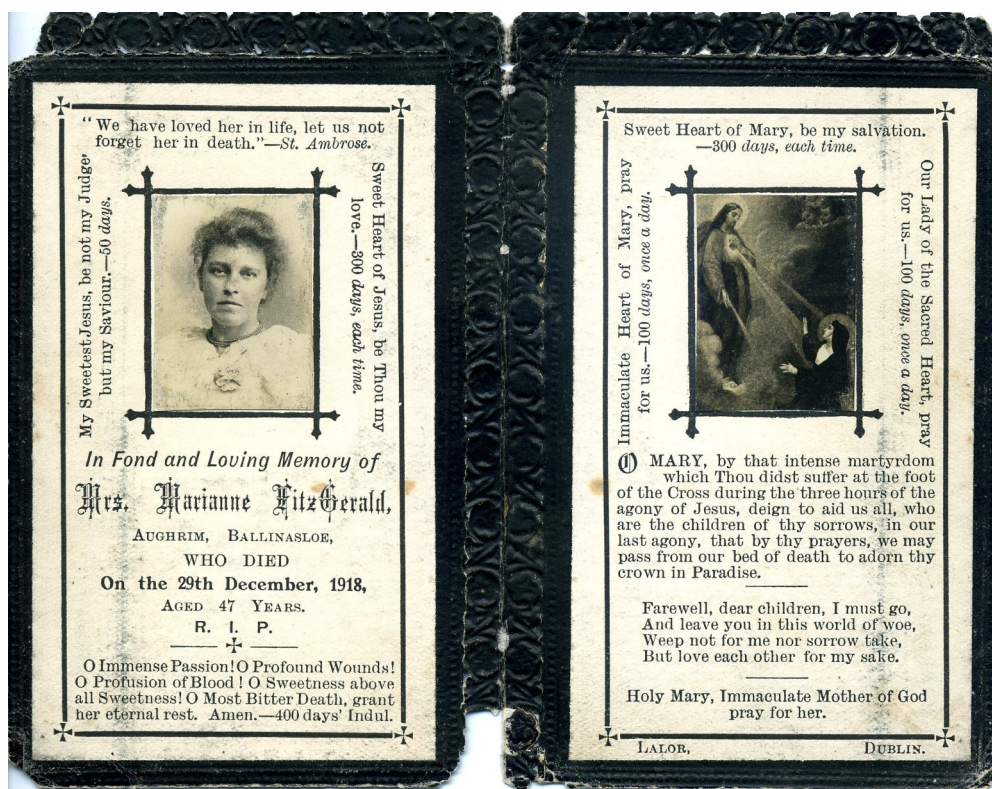 “ We have loved her in life, let us not
forget her in death.”—St. Ambrose.
My Sweetest Jesus, be not my Judge
but my Saviour.—50 days.
Sweet Heart of Jesus, be Thou my
love.—300 days, each time.
In Fond and Loving Memory of
Mrs. Marianne FitzGerald,
AUGHRIM, BALLINASLOE,
WHO DIED
On the 29th December, 1918,
AGED 47 YEARS.
R. I. P.
O Immense Passion! O Profound Wounds!
O Profusion of Blood! O Sweetness above
all Sweetness! O Most Bitter Death, grant
her eternal rest. Amen.—400 days' Indul.
Sweet Heart of Mary, be my salvation.
—300 days, each time.
Immaculate Heart of Mary, pray
for us.—100 days, once a day.
Our Lady of the Sacred Heart, pray
for us.—100 days, once a day.
O MARY, by that intense martyrdom
which Thou didst suffer at the foot
of the Cross during the three hours of the
agony of Jesus, deign to aid us all, who
are the children of thy sorrows, in our
last agony, that by thy prayers, we may
pass from our bed of death to adorn thy
crown in Paradise.
Farewell, dear children, I must go,
And leave you in this world of woe,
Weep not for me nor sorrow take,
But love each other for my sake.
Holy Mary, Immaculate Mother of God
pray for her.
LALOR, DUBLIN.